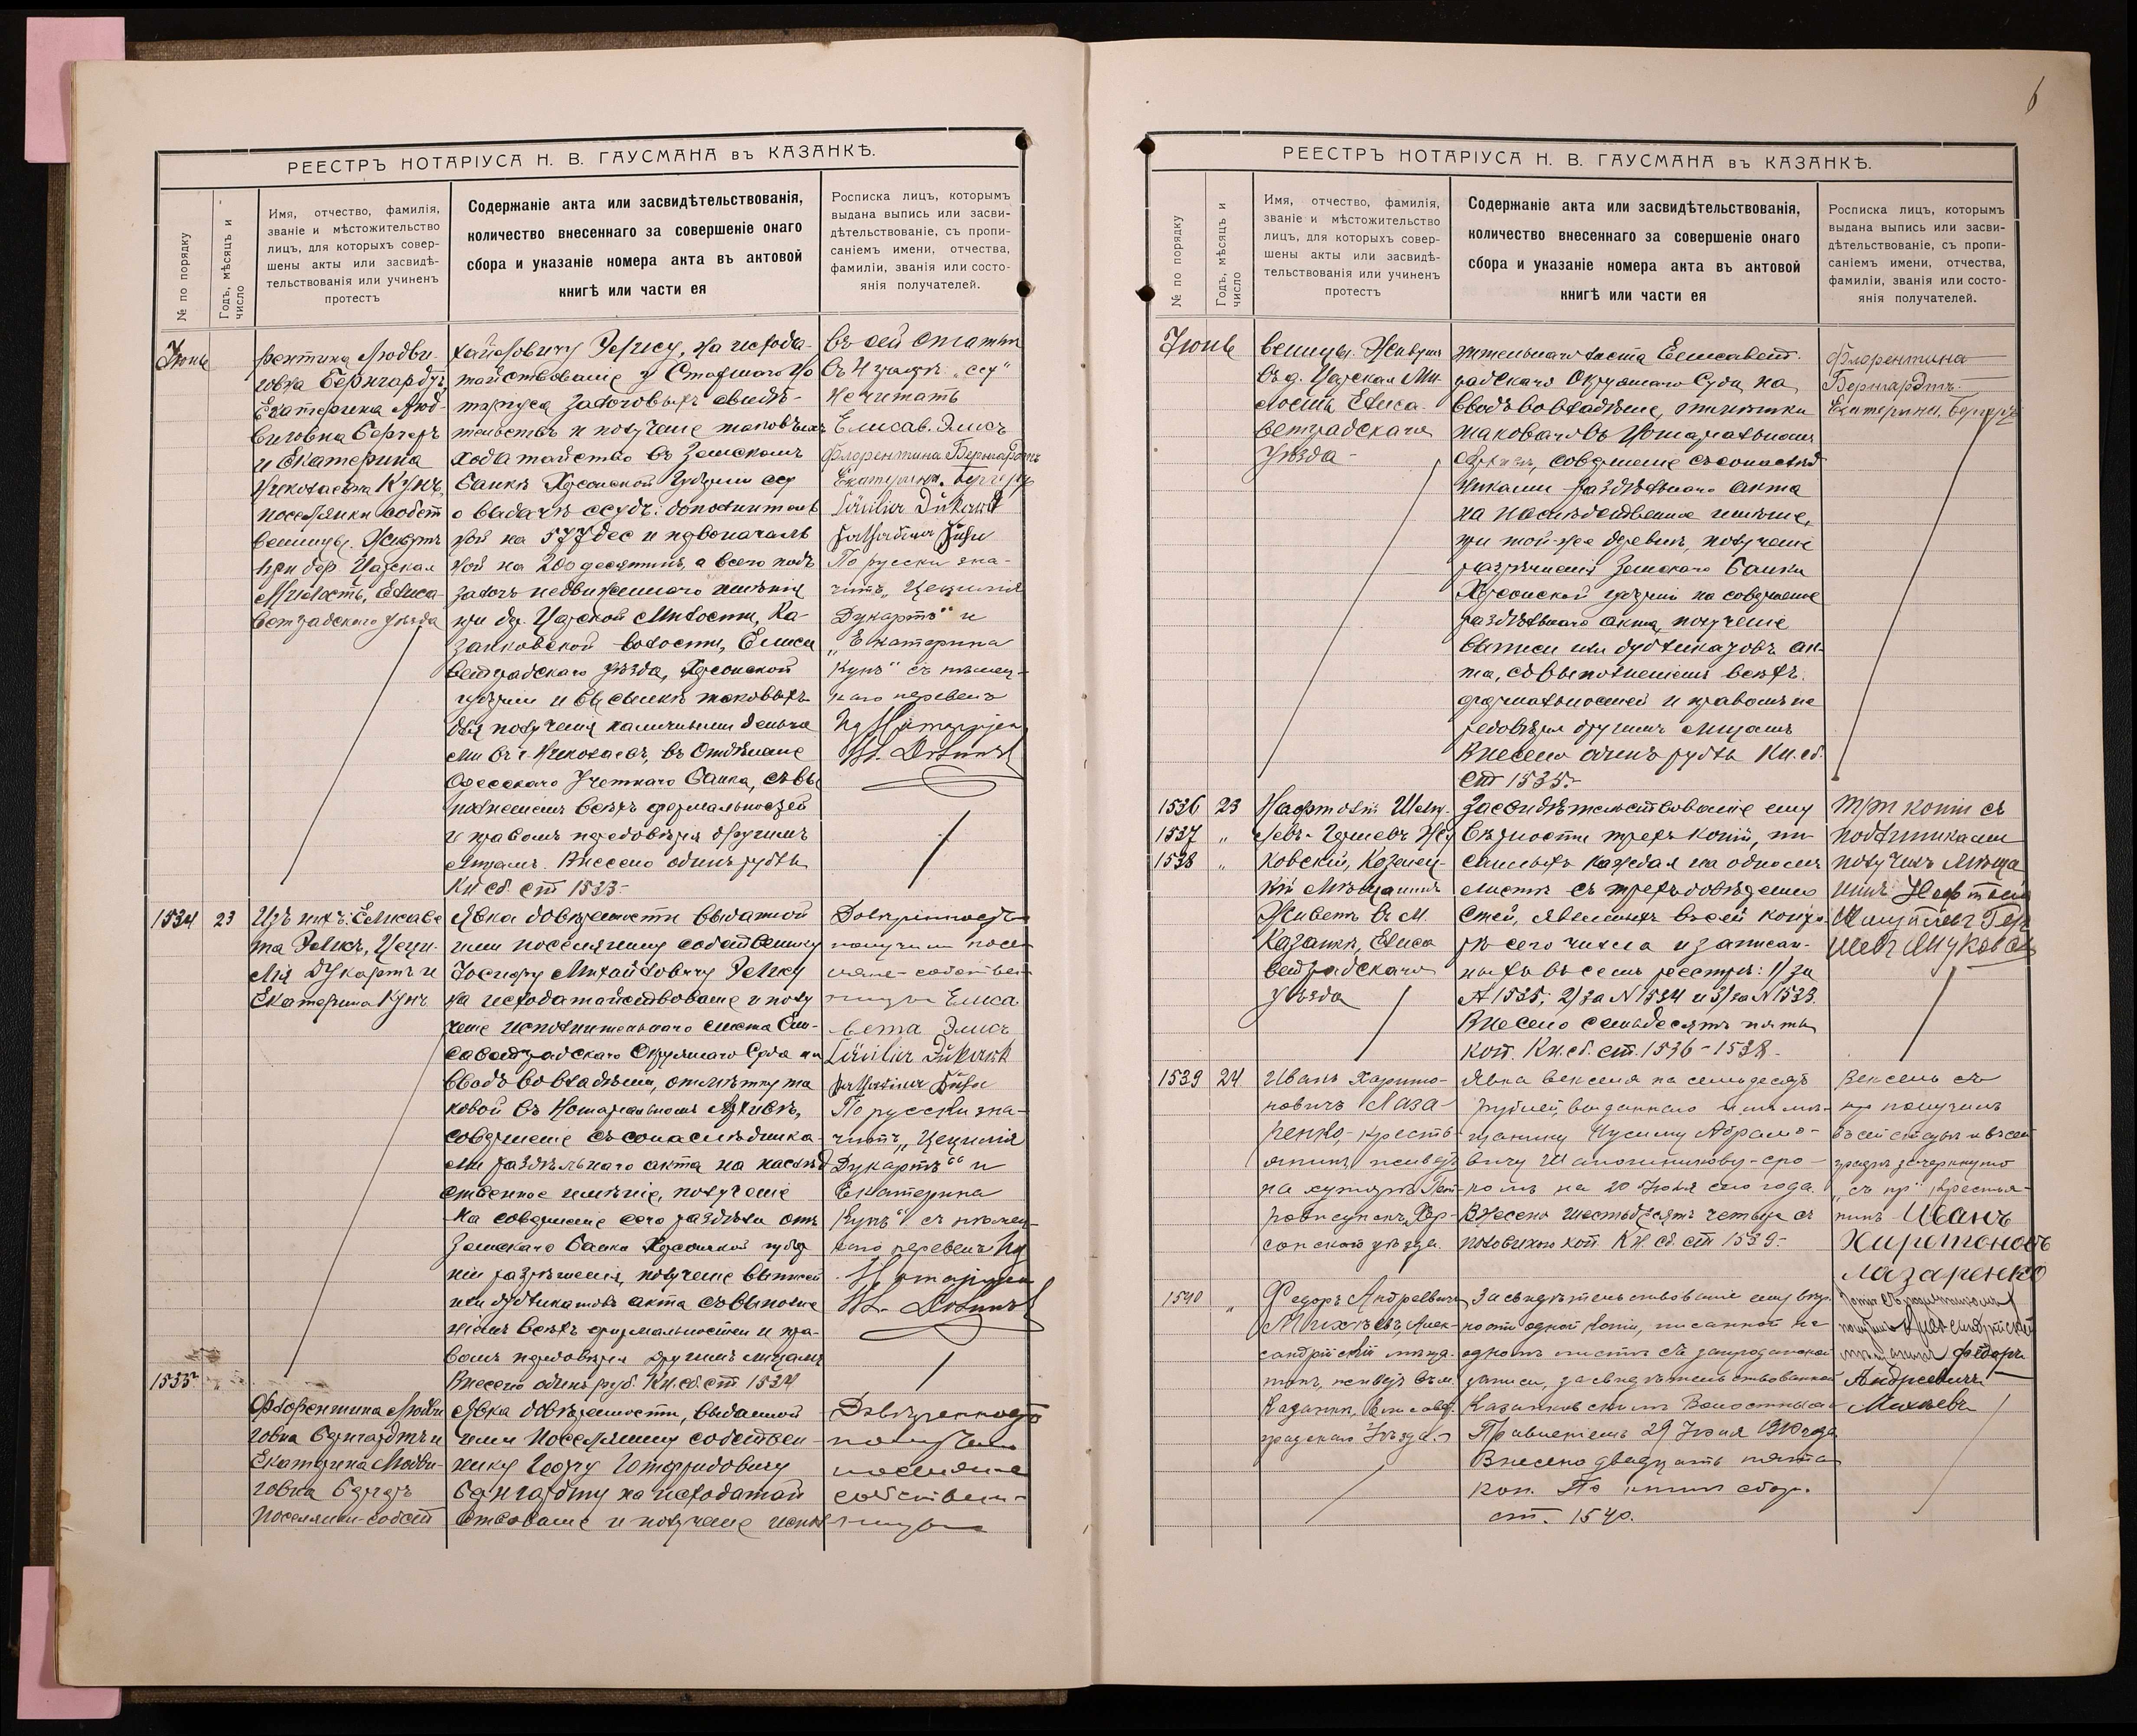 РЕЕСТРЪ НОТАРІУСА Н. В. ГАУСМАНА въ КАЗАНКѢ.
№ по порядку
Годъ, мѣсяцъ и число
Имя, отчество, фамилія,
званіе и мѣстожительство
лицъ, для которыхъ совер-
шены акты или засвидѣ-
тельствованія или учиненъ
протестъ
Содержаніе акта или засвидѣтельствованія,
количество внесеннаго за совершеніе онаго
сбора и указаніе номера акта въ актовой
книгѣ или части ея
Росписка лицъ, которымъ
выдана выпись или засви-
дѣтельствованіе, съ пропи-
саніемъ имени, отчества,
фамиліи, званія или состо-
янія получателей.
Іюнь
рентина Людви-
говна Бернгардтъ
Екатерина Люд-
виговна Бергеръ
и Екатерина
Николаевна Кунъ,
поселянки собст
венницы. Живутъ
при дер. Царская
Милость, Елиса-
ветградскаго уѣзда
хайловичу Релису, на исхода-
тайствованіе у Старшаго Но
таріуса залоговыхъ свидѣ-
тельствъ и полученіе таковыхъ
ходатайство въ Земскомъ
Банкѣ Херсонской Губерніи ссу
о выдачѣ ссудъ: дополнитель
ной на 577 дес и первоначаль
ной на 200 десятинъ, а всего подъ
залогъ недвижимаго имѣнія
при дер. Царской Милости, Ка-
занковской волости, Елиса
ветградскаго уѣзда, Херсонской
губерніи и высылкѣ таковыхъ
для полученія наличными деньга
ми въ г. Николаевѣ, въ Отдѣленіе
Одесскаго Учетнаго Банка, съ вы
полненіемъ всѣхъ формальностей
и правомъ передовѣрія другимъ
лицамъ. Внесено одинъ рубль
Кн. сб. ст 1533.-
Въ сей статьи
въ 4 графѣ „ссу"
не читать
Елисав. Элисъ
Флорентина Бернгардтъ
Екатерина Бергеръ
По русски зна-
читъ „Цецилія
Дукартъ" и
„Екатерина
Кунъ" съ нѣмец-
каго перевелъ
1534 23
Изъ нихъ: Елисаве
та Релисъ, Цеци-
лія Дукартъ и
Екатерина Кунъ
Явка довѣренности выданной
ими поселянину собственнику
Іосифу Михайловичу Релису
на исходатайствованіе и полу
ченіе исполнительнаго листа Ели-
саветградскаго Окружнаго Суда на
вводъ во владѣніи, отмѣтку та
ковой въ Нотаріальномъ Архивѣ,
совершеніе съ сонаслѣдника-
ми раздѣльнаго акта на наслѣд
ственное имѣніе, полученіе
на совершеніе сего раздѣла отъ
Земскаго Банка Херсонской губер
ніи разрѣшенія, полученіе выписей
или дубликатовъ акта съ выполне
ніемъ всѣхъ формальностей и пра-
вомъ передовѣрія другимъ лицамъ
Внесено одинъ руб. Кн. сб. ст 1534
Довѣренность
получили посе
ляне-собствен
ницы Елиса
вета Элисъ
По русски зна-
читъ „Цецилія
Дукартъ" и
Екатерина
Кунъ" съ нѣмец-
каго перевелъ
1535
Флорентина Людви
говна Бернгардтъ и
Екатерина Людви-
говна Бергеръ
поселянки-собств
Явка довѣренности, выданной
ими поселянину собствен-
нику Георгу Готфридовичу
Бернгардту на исходатай
ствованіе и полученіе испол
Довѣренность
получили
поселяне
собствен-
ницы
6
РЕЕСТРЪ НОТАРІУСА Н. В. ГАУСМАНА въ КАЗАНКѢ.
№ по порядку
Годъ, мѣсяцъ и число
Имя, отчество, фамилія,
званіе и мѣстожительство
лицъ, для которыхъ совер-
шены акты или засвидѣ-
тельствованія или учиненъ
протестъ
Содержаніе акта или засвидѣтельствованія,
количество внесеннаго за совершеніе онаго
сбора и указаніе номера акта въ актовой
книгѣ или части ея
Росписка лицъ, которымъ
выдана выпись или засви-
дѣтельствованіе, съ пропи-
саніемъ имени, отчества,
фамиліи, званія или состо-
янія получателей.
Іюнь
веницы. Живутъ
въ д. Царская Ми-
лость Елиса-
ветградскаго
уѣзда
нительнаго листа Елисавет-
радскаго Окружнаго Суда на
вводъ во владѣніе, отмѣтки
таковаго въ Нотаріальномъ
Архивѣ, совершеніе съ сонаслѣд
никами раздѣльнаго акта
на наслѣдственное имѣніе,
при той-же деревнѣ, полученіе
разрѣшенія Земскаго Банка
Херсонской губерніи на совершеніе
раздѣльнаго акта, полученіе
выписи или дубликатовъ ак-
та, съ выполненіемъ всѣхъ
формальностей и правомъ пе
редовѣрія другимъ лицамъ
Внесено одинъ рубль Кн. сб.
ст 1535.-
Флорентина
Бернгардтъ.
Екатерина Бергеръ
1536 23
1537 "
1538 "
Нафтолій Шму-
левъ-Гершевъ Жу
ковскій, Казанец-
кій мѣщанинъ
Живетъ въ м.
Казанкѣ, Елиса
ветградскаго
уѣзда
Засвидѣтельствованіе ему
вѣрности трехъ копій, пи-
санныхъ каждая на одномъ
листѣ съ трехъ довѣренно
стей, явленныхъ въ сей конто-
рѣ сего числа и записан-
ныхъ въ семъ реестрѣ: 1/ за
№ 1535; 2/ за № 1534 и 3/ за № 1533.
Внесено семьдесятъ пять
коп. Кн. сб. ст. 1536-1538.
три копіи съ
подлинниками
получилъ мѣща
нинъ Нафтолій
1539 24
Иванъ Харито-
новичъ Лаза-
ренко, кресть-
янинъ, живетъ
на хуторѣ
Херсонскаго уѣзда.
Явка векселя на семьдесятъ
рублей, выданнаго имъ мѣ-
щанину Иусиму Абрамо-
вичу Шапошникову-сро-
комъ на 20 Іюля сего года.
Внесено шестьдесятъ четыре съ
половиною коп. Кн. сб. ст 1539.-
Вексель съ
пр получилъ
въ сей статьѣ и въ сей
графѣ зачеркнуто
„съ пр" крестья-
нинъ Иванъ
Харитоновъ
Лазаренко
1540 "
Федоръ Андреевичъ
Михѣевъ, Алек-
сандрійскій мѣща-
нинъ, живетъ въ м.
Казанки, Елисавет-
градскаго уѣзда.
Засвидѣтельствованіе ему вѣр-
ности одной копіи, писанной на
одномъ листѣ съ запродажной
записи, засвидѣтельствованной
Казанковскимъ Волостнымъ
Правленіемъ 29 Іюня 1910 года
Внесено двадцать пять
коп. По книгѣ сбор.
ст. 1540.
Копію съ подлинникомъ
получилъ Александрійскій
мѣщанинъ Федоръ
Андреевичъ
Михѣевъ